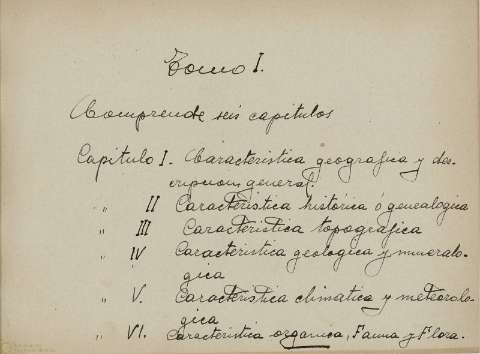 Tomo I.
Comprende seis capitulos
Capitulo I. Caracteristica geografica y des-
cripcion general.
" II Caracteristica histórica ó genealogica
" III Caracteristica topografica
" IV Caracteristica geologica y mineralo-
gica
" V. Caracteristica climatica y meteorolo-
gica
" VI. Caracteristica organica, Fauna y Flora.